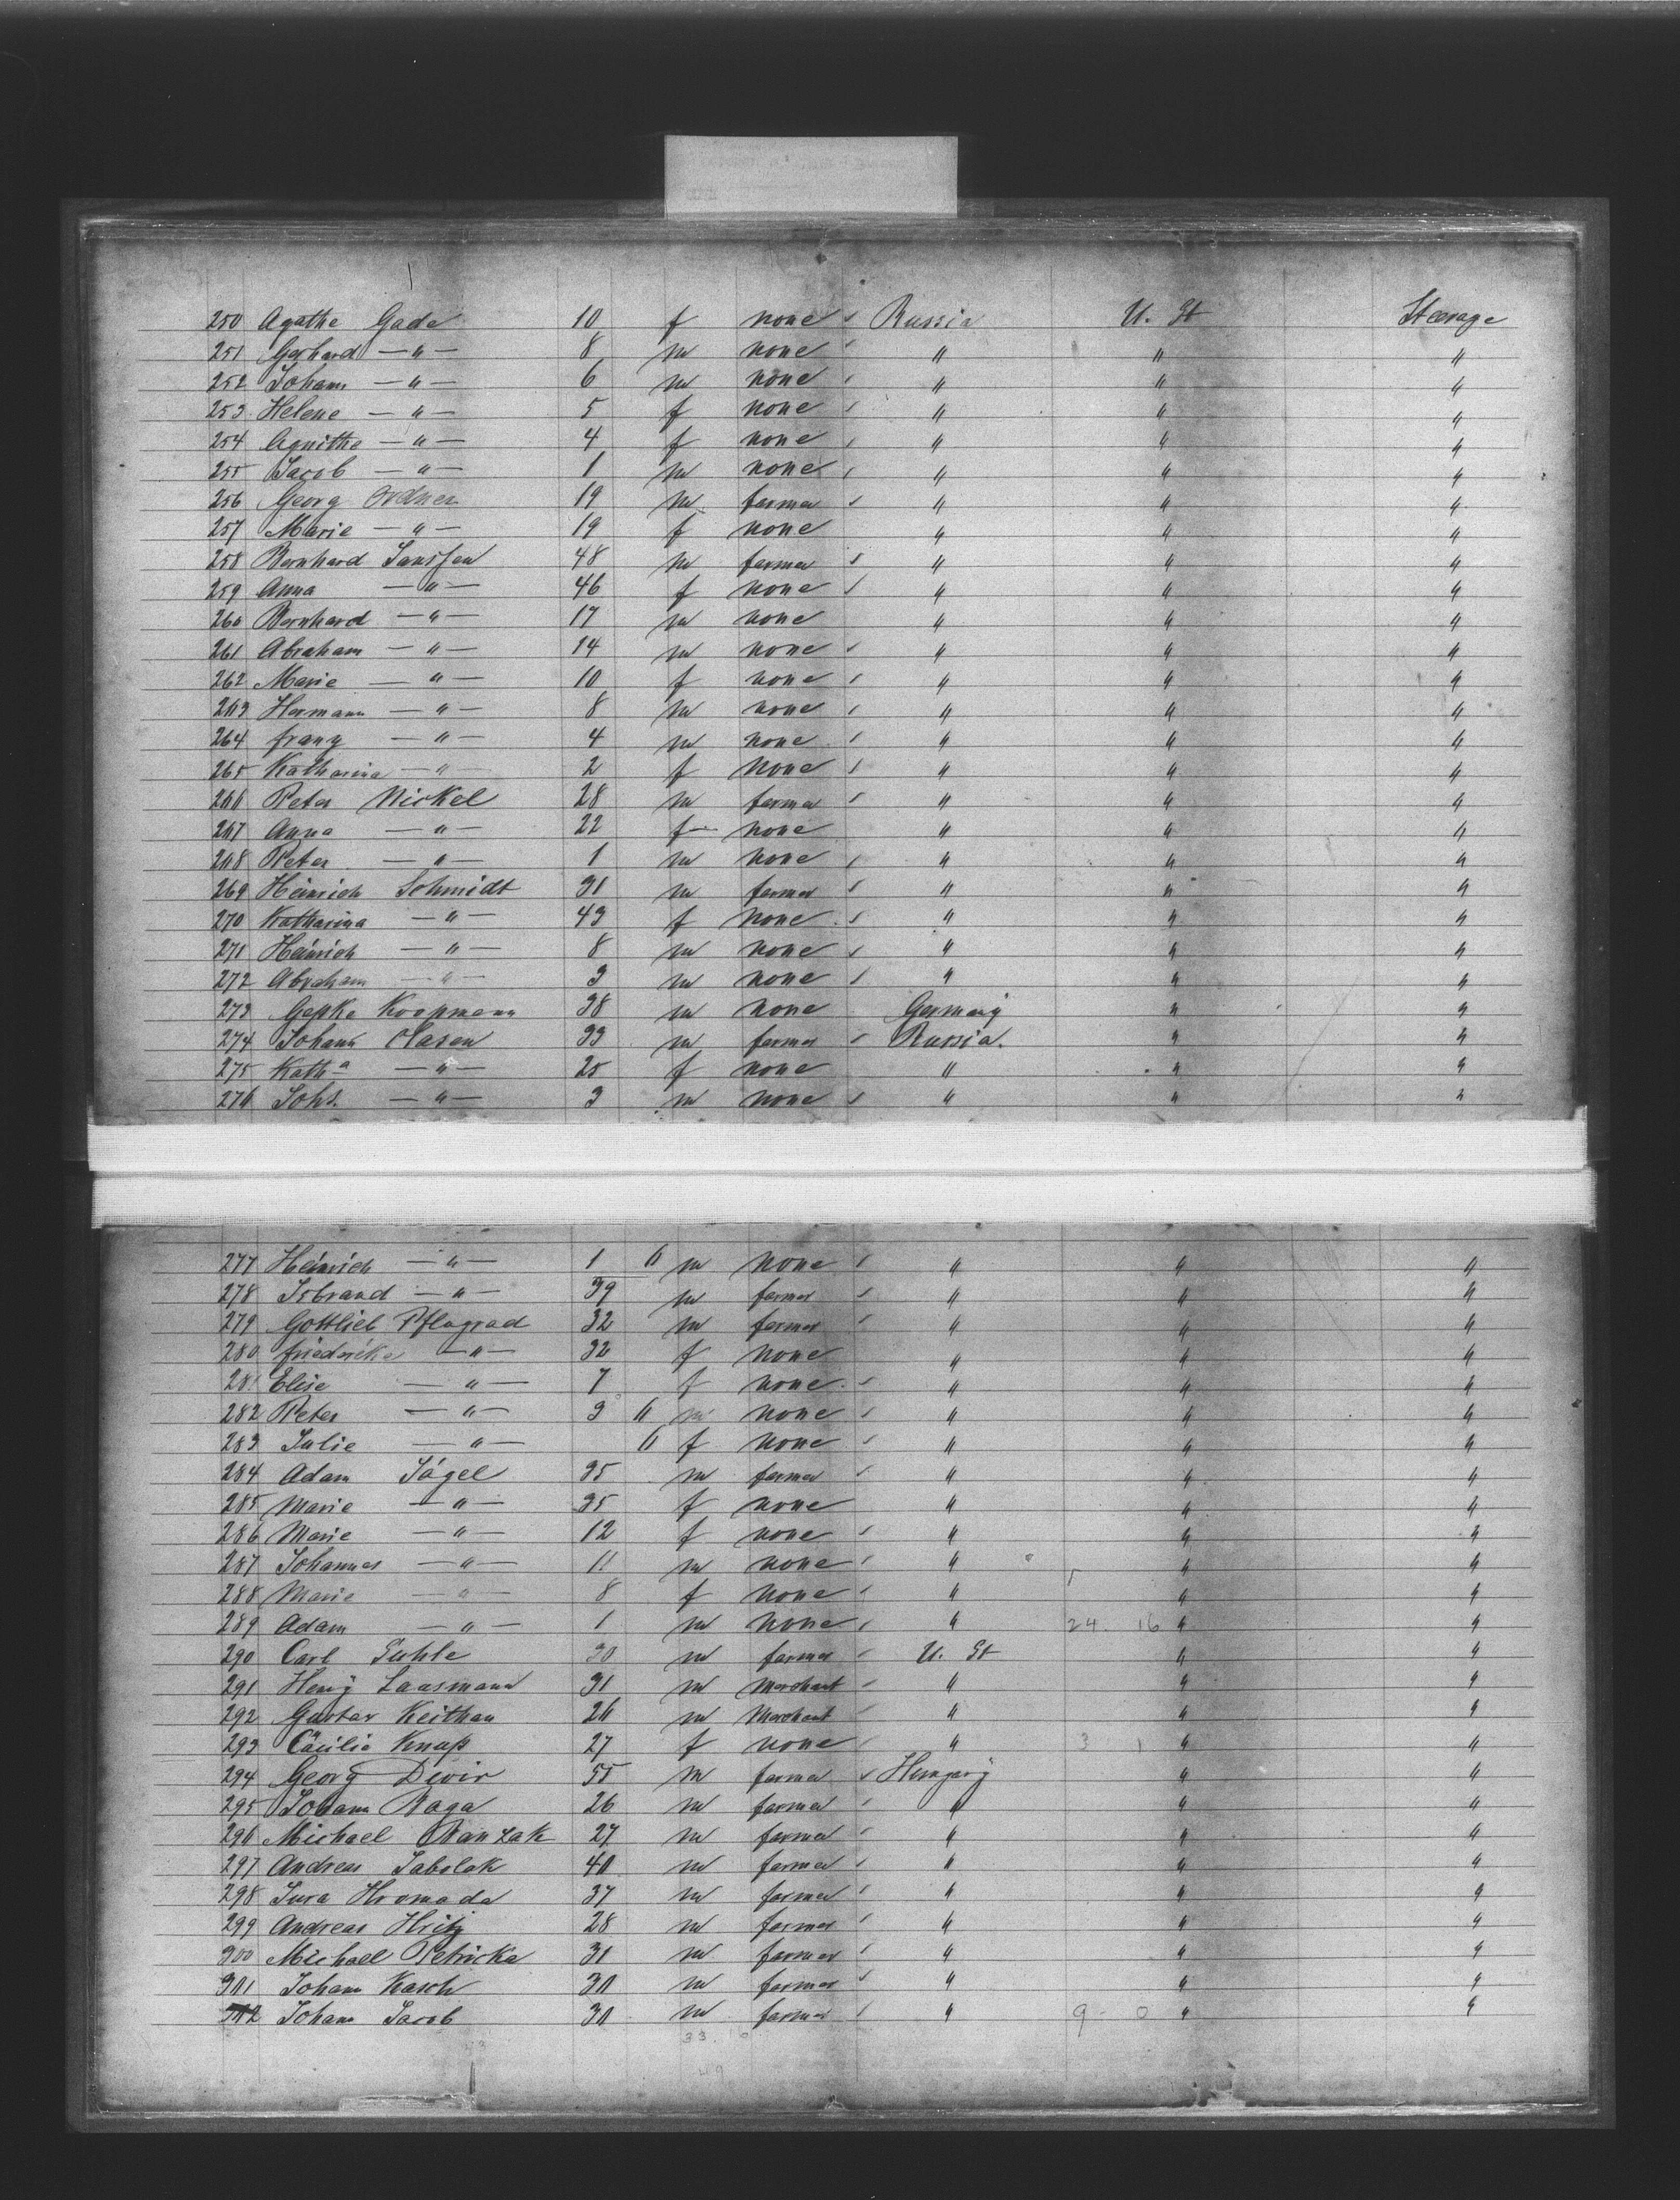 250 Agathe Gade 10 f none Russia U. St Steerage
251 Gerhard —"— 8 m none " " "
252 Johann —"— 6 m none " " "
253 Helene —"— 5 f none " " "
254 Aganithe —"— 4 f none " " "
255 Jacob —"— 1 m none " " "
256 Georg Ordner 19 m farmer " " "
257 Marie —"— 19 f none " " "
258 Bernhard Janssen 48 m farmer " " "
259 Anna —"— 46 f none " " "
260 Bernhard —"— 17 m none " " "
261 Abraham —"— 14 m none " " "
262 Marie —"— 10 f none " " "
263 Hermann —"— 8 m none " " "
264 Franz —"— 4 m none " " "
265 Katharina —"— 2 f none " " "
266 Peter Nickel 28 m farmer " " "
267 Anna —"— 22 f none " " "
268 Peter —"— 1 m none " " "
269 Heinrich Schmidt 31 m farmer " " "
270 Katharina —"— 43 f none " " "
271 Heinrich —"— 8 m none " " "
272 Abraham —"— 3 m none " " "
273 Gepke Koopmann 38 m none Germany " "
274 Johann Clasen 33 m farmer Russia. " "
275 Kath a —"— 25 f none " " "
276 Johs. —"— 3 m none " " "
277 Heinrich —"— 1 6 m none " " "
278 Isbrand —"— 39 m farmer " " "
279 Gottlieb Pflugrad 32 m farmer " " "
280 Friedrike —"— 32 f none " " "
281 Elise —"— 7 f none " " "
282 Peter —"— 3 6 m none " " "
283 Julie —"— 6 f none " " "
284 Adam Jägel 35 m farmer " " "
285 Marie —"— 35 f none " " "
286 Marie —"— 12 f none " " "
287 Johannes —"— 11 m none " " "
288 Marie —"— 8 f none " " "
289 Adam —"— 1 m none " 24 16 " "
290 Carl Puhle 30 m farmer U. St " "
291 Henry Laasmann 31 m Merchant " " "
292 Gustav Keithan 26 m Merchant " " "
293 Cäcilie Knup 27 f none " 3 1 " "
294 Georg Devir 55 m farmer Hungary " "
295 Johann Baga 26 m farmer " " "
296 Michael Banzak 27 m farmer " " "
297 Andreas Jabolak 40 m farmer " " "
298 Jura Hromada 37 m farmer " " "
299 Andreas Hritz 28 m farmer " " "
300 Michael Petricka 31 m farmer " " "
301 Johann Kasch 30 m farmer " " "
302 Johann Jacob 30 m farmer " 9 0 " "
33. 16
49